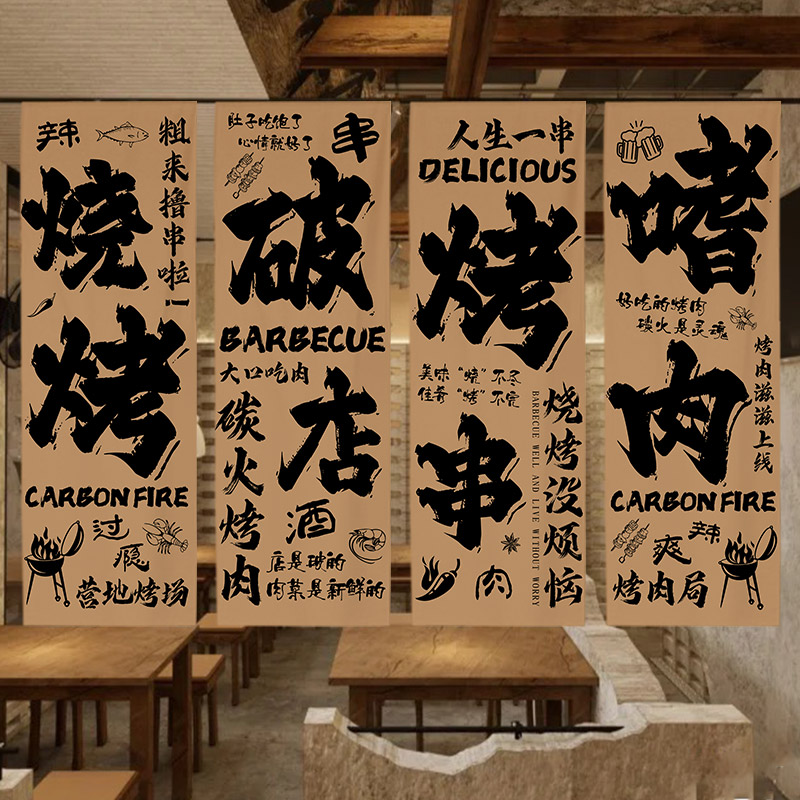 辣
粗来撸串啦
烧
烤
CARBON FIRE
过
瘾
营地烤场
肚子吃饱了
心情就好了
串
破
BARBECUE
大口吃肉
店
碳火烤肉
酒
店是破的
肉菜是新鲜的
人生一串
DELICIOUS
烤
美味“烧”不尽
佳肴“烤”不完
串
BARBECUE WELL AND LIVE WITHOUT WORRY
烧烤没烦恼
肉
嗜
好吃的烤肉
碳火是灵魂
烤肉滋滋上线
肉
CARBON FIRE
辣
爽
烤肉局